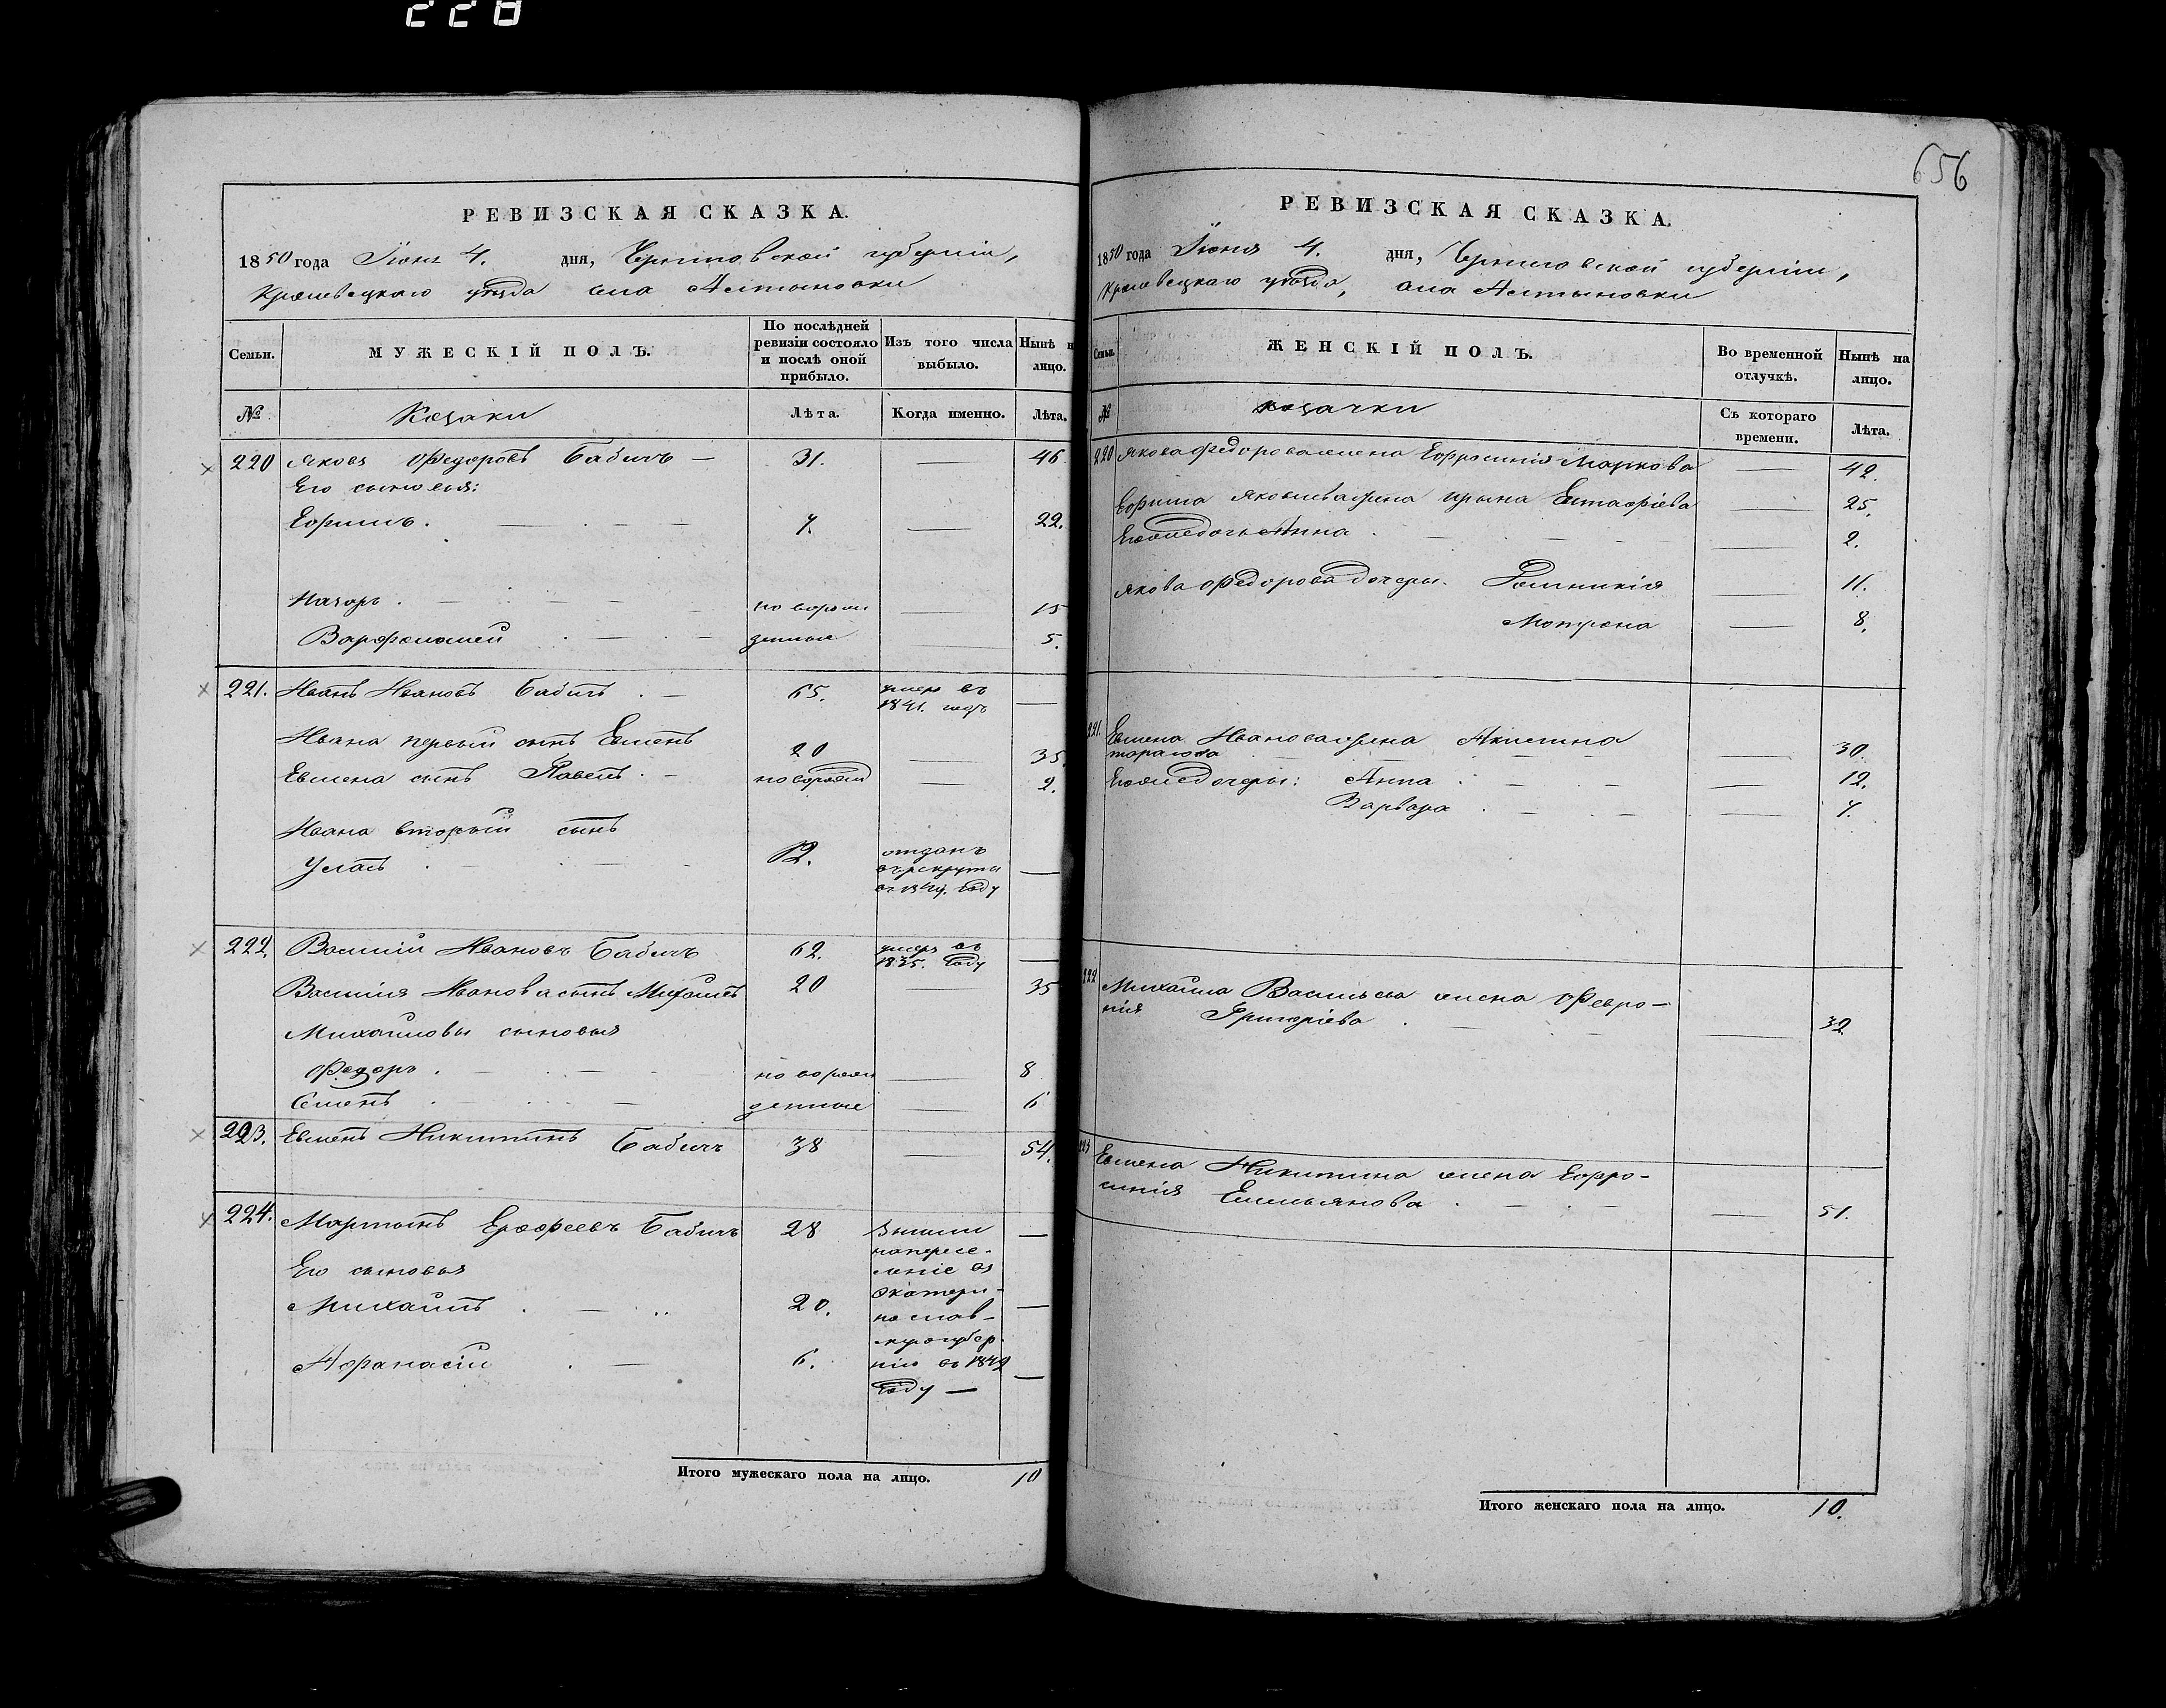 228
РЕВИЗСКАЯ СКАЗКА.
1850 года Іюня 4. дня, Черниговской губерніи,
Кролевецкаго уѣзда села Алтыновки
Семьи. МУЖЕСКІЙ ПОЛЪ. По послѣдней ревизіи состояло и послѣ оной прибыло. Изъ того числа выбыло. Нынѣ на лицо.
№ Козаки Лѣта. Когда именно. Лѣта.
220 Яковъ Федоровъ Бабичъ — 31. — 46
Его сыновья:
Ефимъ. 7. — 22.
Назаръ. новорож 15
Варфоломей денные 5.
221. Иванъ Ивановъ Бабичъ. — 65. умеръ въ 1841. годѣ —
Ивана первый сынъ Евменъ 20 — 35.
Евмена сынъ Павелъ. — новорожд — 2.
Ивана вторый сынъ
Уласъ 12. отданъ въ рекруты въ году —
222. Василій Ивановъ Бабичъ 62. умеръ въ 1835. году —
Василія Иванова сынъ Михаилъ 20 — 35
Михаиловы сыновья
Федоръ. новорож — 8
Семенъ денные — 6
223. Евменъ Никитинъ Бабичъ 38 — 54.
224. Мартынъ Ерофеевъ Бабичъ 28 вышли —
на пересе-
Его сыновья леніе въ
Михаилъ. — 20. Екатери- —
нослав-
скую губер-
Афанасій — 6. нію въ 1842 —
году —
Итого мужескаго пола на лицо. 10
656
РЕВИЗСКАЯ СКАЗКА.
1850 года Іюня 4. дня, Черниговской губерніи,
Кролевецкаго уѣзда, села Алтыновки
Семьи. ЖЕНСКІЙ ПОЛЪ. Во временной отлучкѣ. Нынѣ на лицо.
№ козачки Съ котораго времени. Лѣта.
220 Якова Федорова жена Ефросинія Маркова — 42.
Ефима Яковлева жена Ирына Евстафіева — 25.
Его же дочь Анна — 2.
Якова Федорова дочери. — 11.
Мотрона — 8.
221. Евмена Иванова жена Акилина
— 30.
Его же дочери: Анна — 12.
Варвара — 7.
222 Михаила Васильева жена Февро-
нія Григоріева — 32
223 Евмена Никитина жена Ефро-
синія Емельянова — 51.
Итого женскаго пола на лицо. 10.